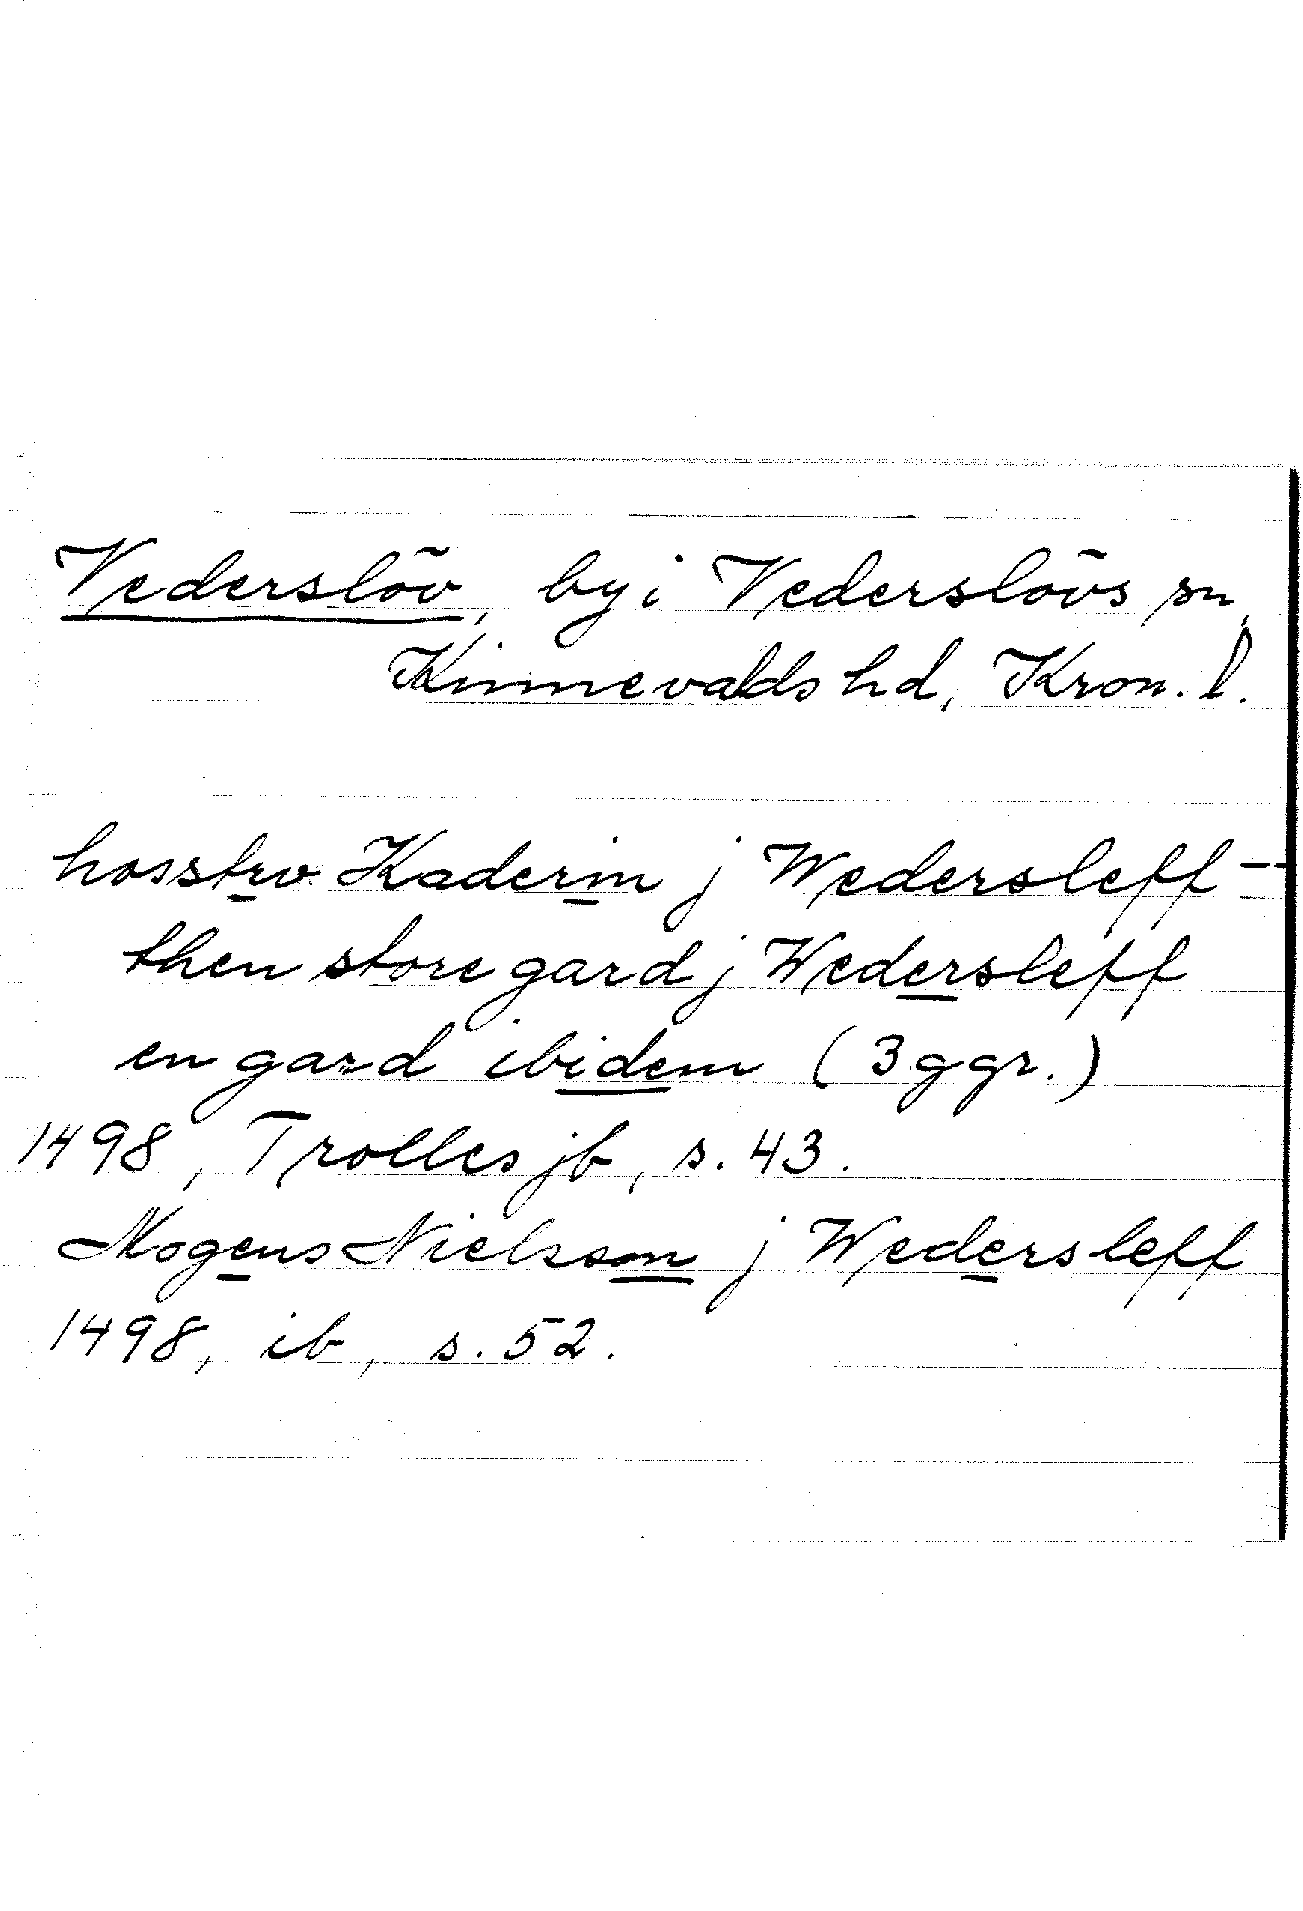 Vederslöv, by i Vederslövs sn,
Kinnevalds hd, Kron. l.
hosstrv Kaderin j Wedersleff --
then store gard j Wedersleff
en gard ibidem (3 ggr.)
1498, Trolles jb, s. 43.
Mogens Nielsson j Wedersleff
1498, ib, s. 52.